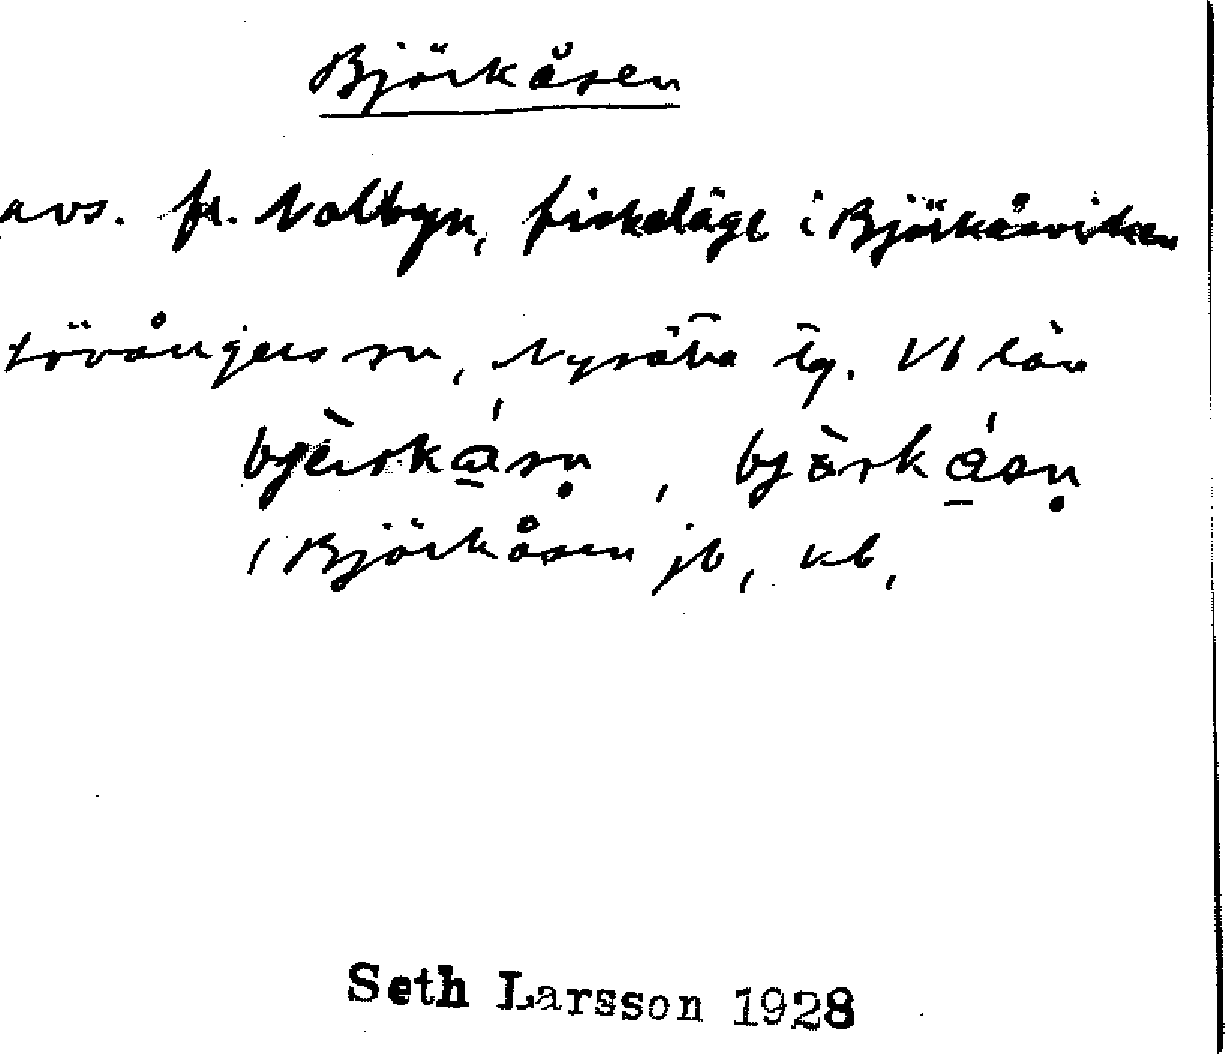 Björkåsen
avs. fr. Nolbyn, fiskeläge i Björkåsviken
Lövångers sn, Nysätra tg. Vb län
bjèrkásn̥, bjö̀rkásn̥
/ Björkåsen jb, kb,
Seth Larsson 1928